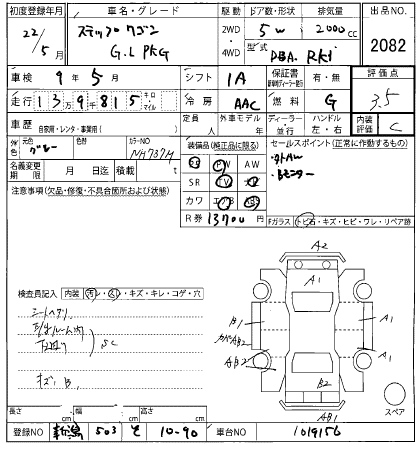 初度登録年月 車名・グレード 駆動 ドア数・形状 排気量 出品NO.
22/5月 ステップワゴン G.L PKG 2WD・4WD 5 W 2000cc 2082
型式 DBA. RK1
車検 9年5月 シフト 1A 保証書 有・無 評価点
走行 13万9千815 キロ マイル 冷房 AAC 燃料 G 3.5
車歴 自家用・レンタ・事業用( ) 定員 人 外車モデル 年 ディーラー 並行 ハンドル 左・右 内装評価 C
外色 元色 グレー 色替 カラーNO NH737M 装備品(純正品に限る) セールスポイント(正常に作動するもの)
SS PW AW
名義変更期限 月 日迄 積載 t SR TV
カワ
注意事項(欠品・修復・不具合箇所および状態) R券 13700 円
Fガラス トビ石・キズ・ヒビ・ワレ・リペア跡
検査員記入 内装 汚レ・スレ・キズ・キレ・コゲ・穴
A2
A1
B1
A1
AB2
A1
B2
AB1
キズ. B
SC
スペア
長さ cm 幅 cm 高さ cm
登録NO 新潟 503 と 10-90 車台NO 1019156